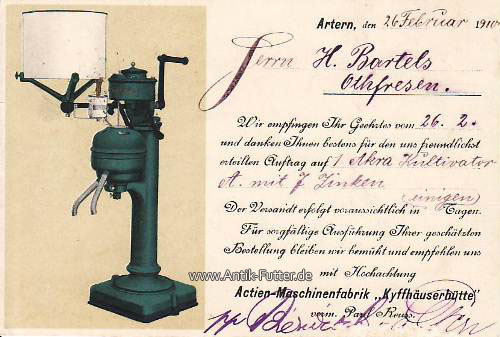 Artern, den 26 Februar 1910
Herrn H. Bartels
Othfresen.
Wir empfingen Ihr Geehrtes vom 26. 2.
und danken Ihnen bestens für den uns freundlichst
erteilten Auftrag auf 1 Akra Kultivator
A. mit 7 Zinken
Der Versandt erfolgt voraussichtlich in (einigen) Tagen.
Für sorgfältige Ausführung Ihrer geschätzten
Bestellung bleiben wir bemüht und empfehlen uns
mit Hochachtung
www.Antik-Futter.de
Actien-Maschinenfabrik „Kyffhäuserhütte"
vorm. Paul Reuss.